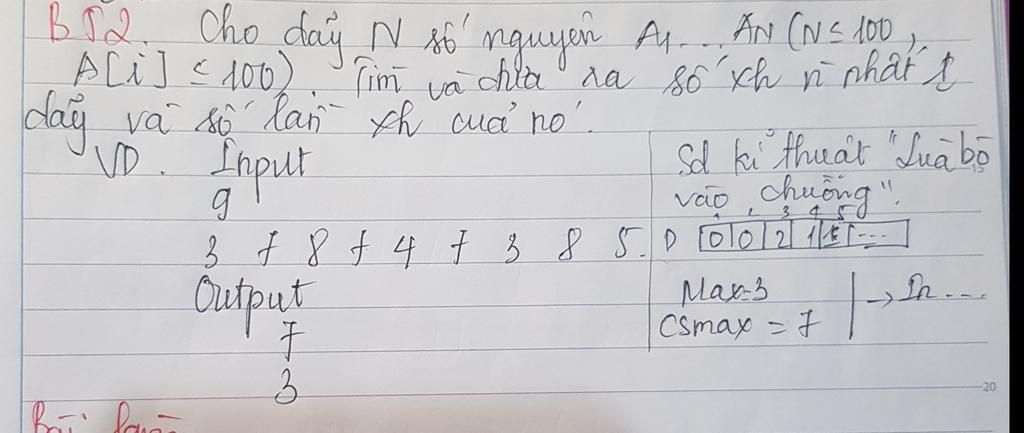 B52. Cho dãy N số nguyên A1... AN (N ≤ 100,
A[i] ≤ 100). Tìm và đưa ra số xh n nhất t
dãy và số lần xh của nó.
VD. Input
9
3 7 8 7 4 7 3 8 5.
Output
7
3
Sd kĩ thuật "Lùa bò
vào chuồng".
1 2 3 4 5
D 0 0 2 1 1 ...
Max=3
CSmax = 7
→ In ....
20
Bài làm